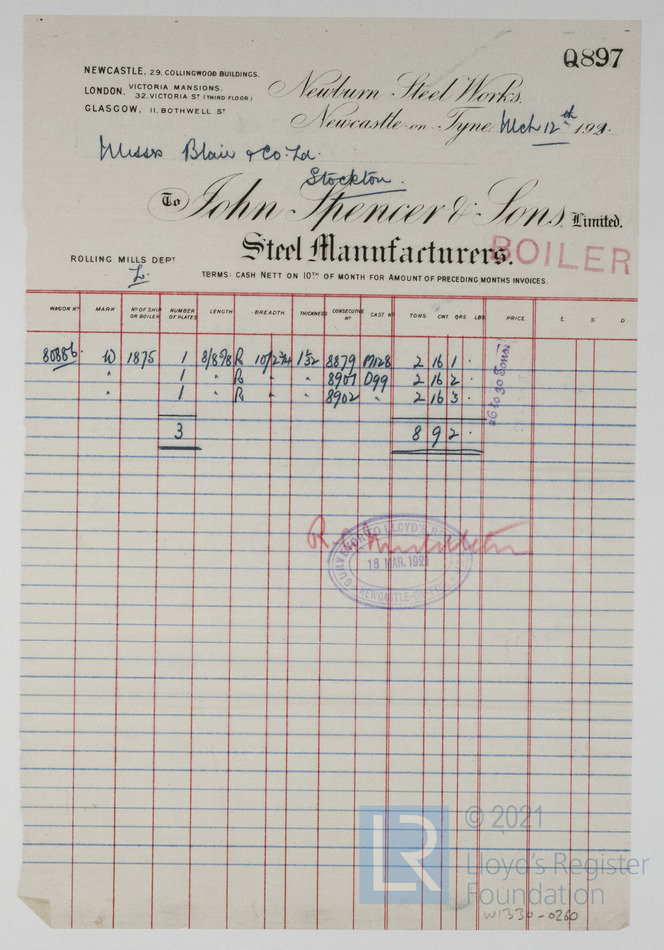 Q897
NEWCASTLE, 29, COLLINGWOOD BUILDINGS.
LONDON, VICTORIA MANSIONS, 32, VICTORIA ST (THIRD FLOOR)
GLASGOW, 11, BOTHWELL ST
Newburn Steel Works,
Newcastle-on-Tyne, Mch 12th 192
Messrs Blair & Co. Ld.
Stockton.
To John Spencer & Sons, Limited.
Steel Manufacturers.
BOILER
ROLLING MILLS DEPT
L.
TERMS: CASH NETT ON 10TH OF MONTH FOR AMOUNT OF PRECEDING MONTHS INVOICES.
WAGON No MARK No OF SHIP OR BOILER NUMBER OF PLATES LENGTH BREADTH THICKNESS CONSECUTIVE No CAST No TONS CWT QRS LBS PRICE. £ S D.
80886 W 1875 1 R 1 5/32 8879 2 16 1 .
" 1 " R " " 8907 D99 2 16 2 .
" 1 " R " " 8902 " 2 16 3 .
26 to 30 Tons
3 8 9 2 .
SURVEYOR TO LLOYD'S
18 MAR. 1921
NEWCASTLE-ON-
LR
© 2021
Lloyd's Register
Foundation
W1330-0260